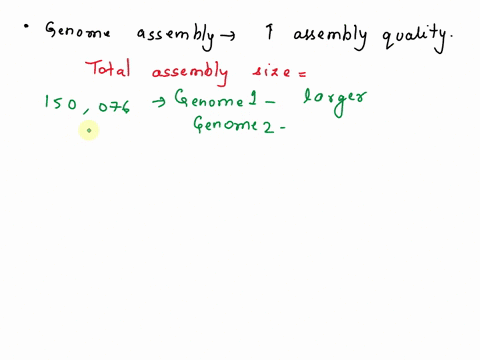 • Genome assembly → ↑ assembly quality.
Total assembly size =
150,076 → Genome 1 - larger
Genome 2 -